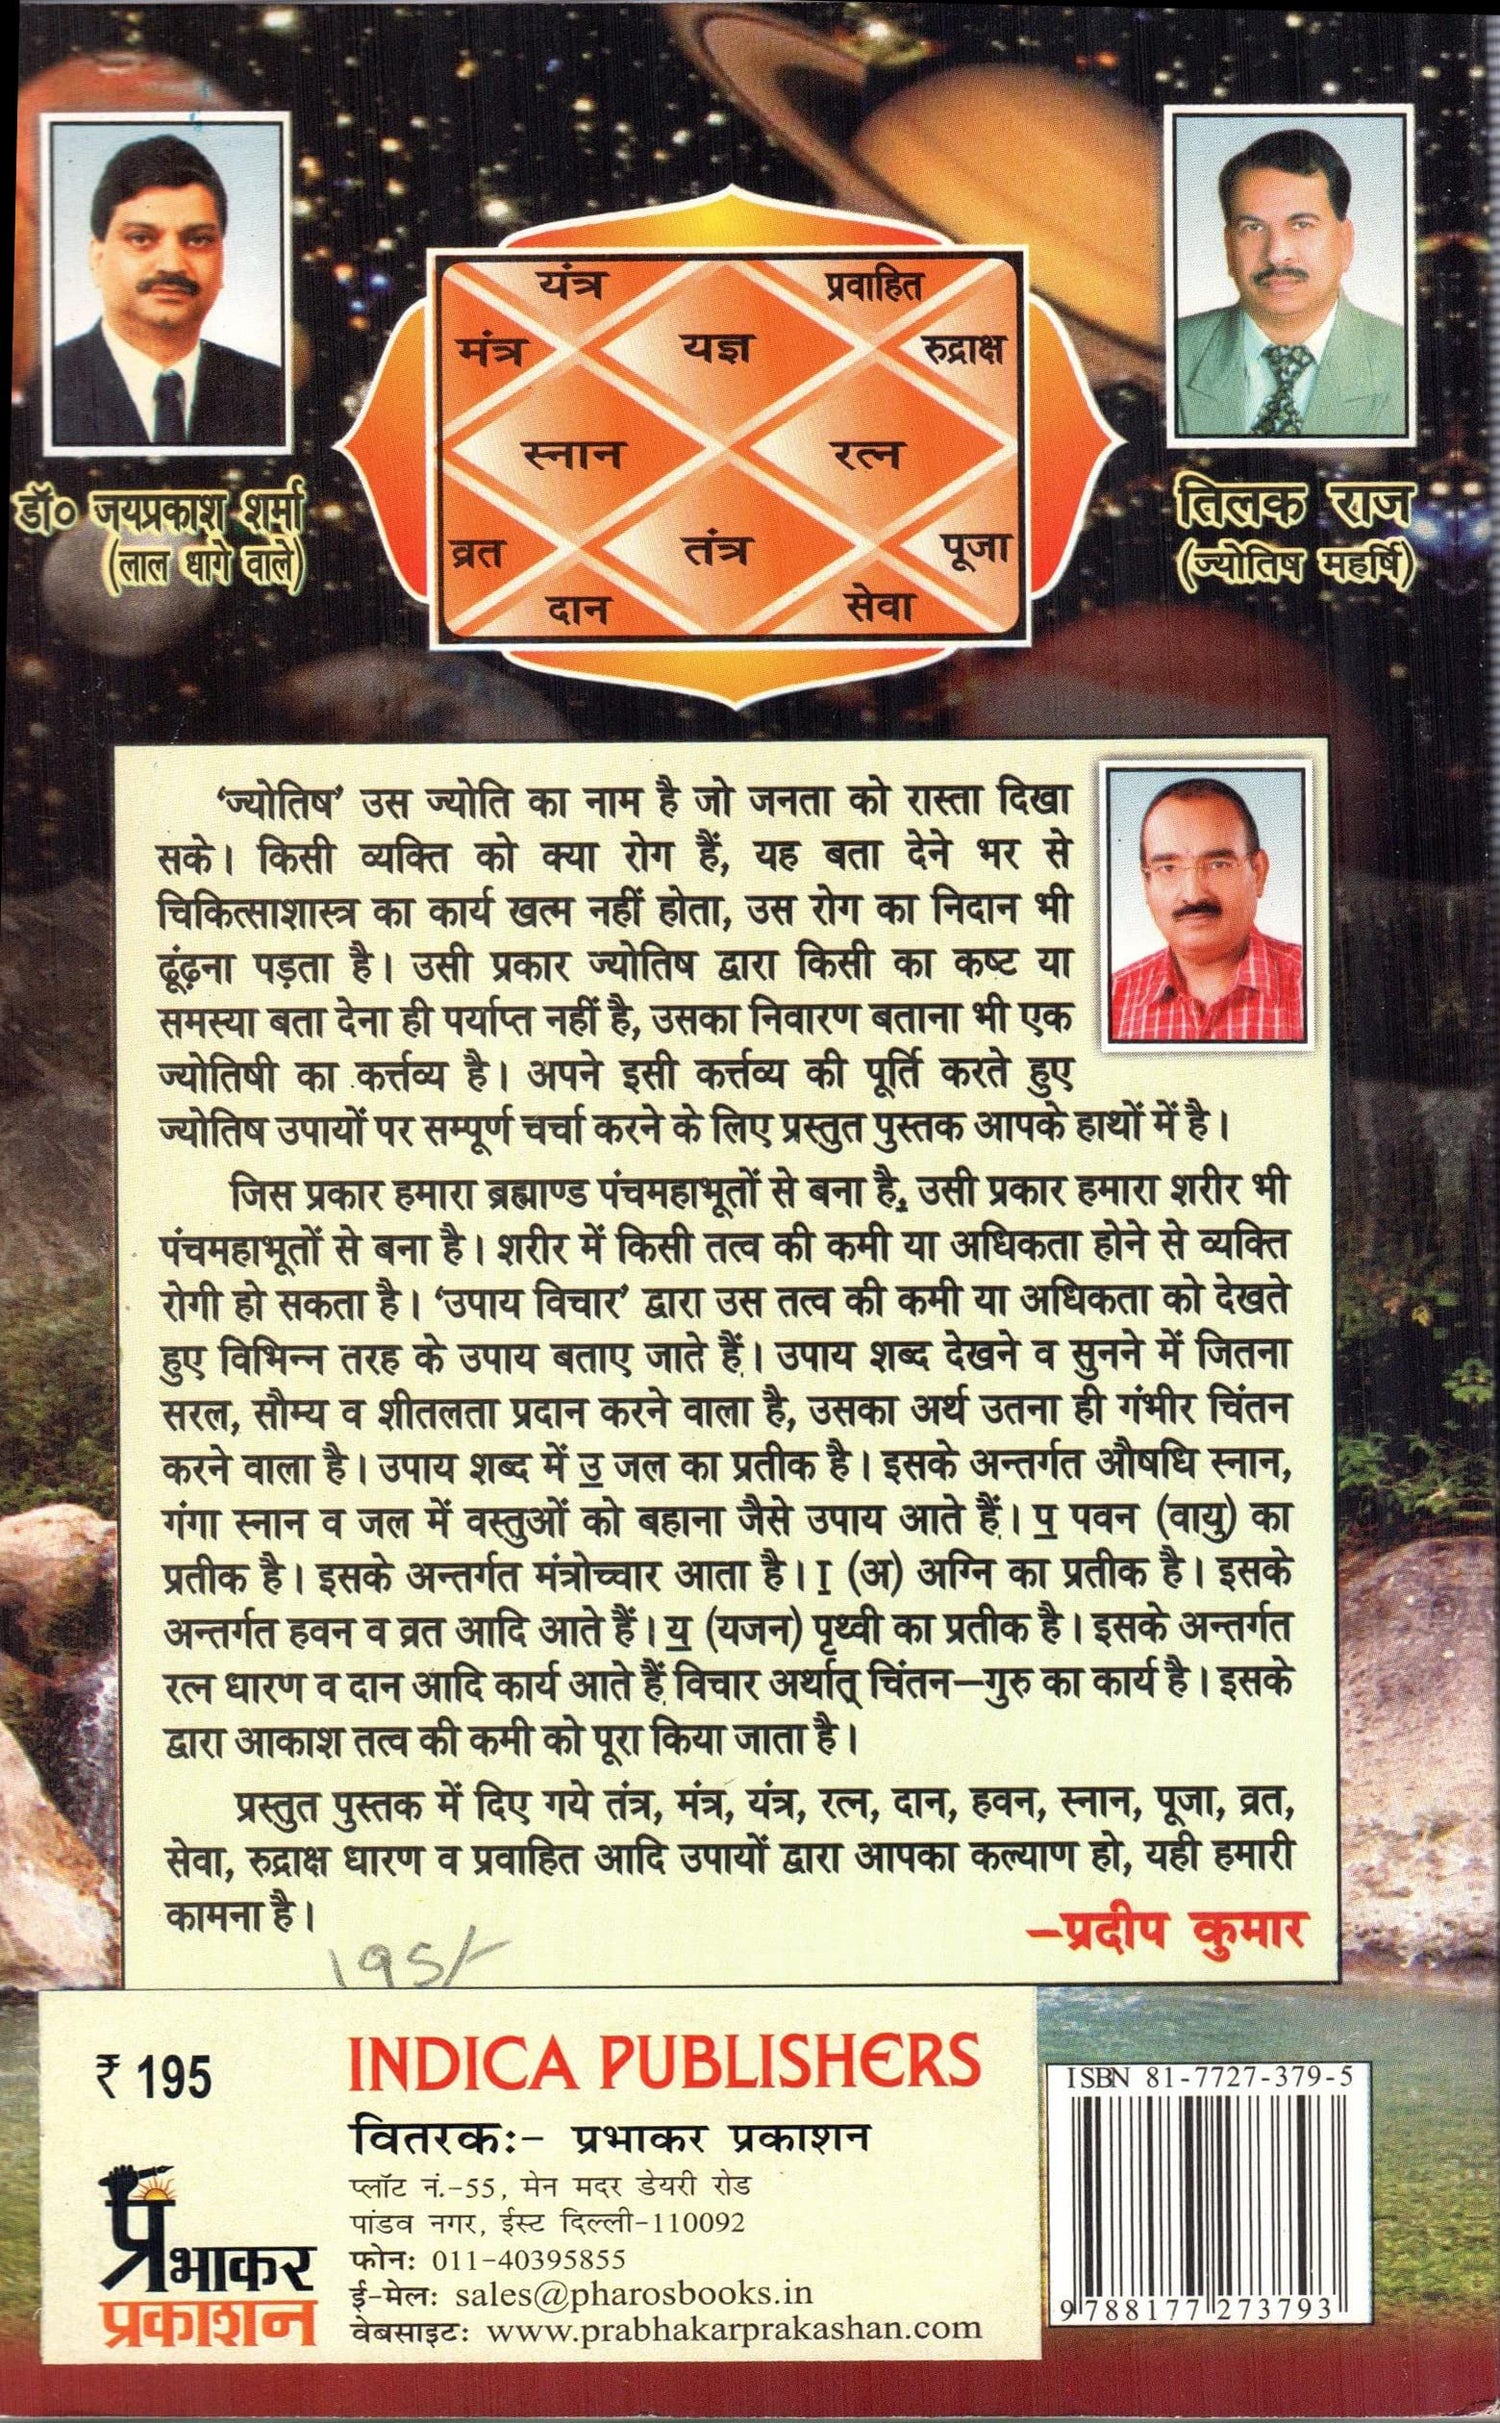 यंत्र
प्रवाहित
मंत्र
यज्ञ
रुद्राक्ष
स्नान
रत्न
व्रत
तंत्र
पूजा
दान
सेवा
डॉ० जयप्रकाश शर्मा
(लाल धागे वाले)
तिलक राज
(ज्योतिष महर्षि)
‘ज्योतिष’ उस ज्योति का नाम है जो जनता को रास्ता दिखा
सके। किसी व्यक्ति को क्या रोग हैं, यह बता देने भर से
चिकित्साशास्त्र का कार्य खत्म नहीं होता, उस रोग का निदान भी
ढूंढ़ना पड़ता है। उसी प्रकार ज्योतिष द्वारा किसी का कष्ट या
समस्या बता देना ही पर्याप्त नहीं है, उसका निवारण बताना भी एक
ज्योतिषी का कर्त्तव्य है। अपने इसी कर्त्तव्य की पूर्ति करते हुए
ज्योतिष उपायों पर सम्पूर्ण चर्चा करने के लिए प्रस्तुत पुस्तक आपके हाथों में है।
जिस प्रकार हमारा ब्रह्माण्ड पंचमहाभूतों से बना है, उसी प्रकार हमारा शरीर भी
पंचमहाभूतों से बना है। शरीर में किसी तत्व की कमी या अधिकता होने से व्यक्ति
रोगी हो सकता है। ‘उपाय विचार’ द्वारा उस तत्व की कमी या अधिकता को देखते
हुए विभिन्न तरह के उपाय बताए जाते हैं। उपाय शब्द देखने व सुनने में जितना
सरल, सौम्य व शीतलता प्रदान करने वाला है, उसका अर्थ उतना ही गंभीर चिंतन
करने वाला है। उपाय शब्द में उ जल का प्रतीक है। इसके अन्तर्गत औषधि स्नान,
गंगा स्नान व जल में वस्तुओं को बहाना जैसे उपाय आते हैं। प पवन (वायु) का
प्रतीक है। इसके अन्तर्गत मंत्रोच्चार आता है। ा (अ) अग्नि का प्रतीक है। इसके
अन्तर्गत हवन व व्रत आदि आते हैं। य (यजन) पृथ्वी का प्रतीक है। इसके अन्तर्गत
रत्न धारण व दान आदि कार्य आते हैं विचार अर्थात् चिंतन–गुरु का कार्य है। इसके
द्वारा आकाश तत्व की कमी को पूरा किया जाता है।
प्रस्तुत पुस्तक में दिए गये तंत्र, मंत्र, यंत्र, रत्न, दान, हवन, स्नान, पूजा, व्रत,
सेवा, रुद्राक्ष धारण व प्रवाहित आदि उपायों द्वारा आपका कल्याण हो, यही हमारी
कामना है।
–प्रदीप कुमार
195/-
₹ 195
INDICA PUBLISHERS
वितरकः- प्रभाकर प्रकाशन
प्लॉट नं.-55, मेन मदर डेयरी रोड
पांडव नगर, ईस्ट दिल्ली-110092
फोनः 011-40395855
ई-मेलः sales@pharosbooks.in
वेबसाइटः www.prabhakarprakashan.com
प्रभाकर
प्रकाशन
ISBN 81-7727-379-5
9 788177 273793